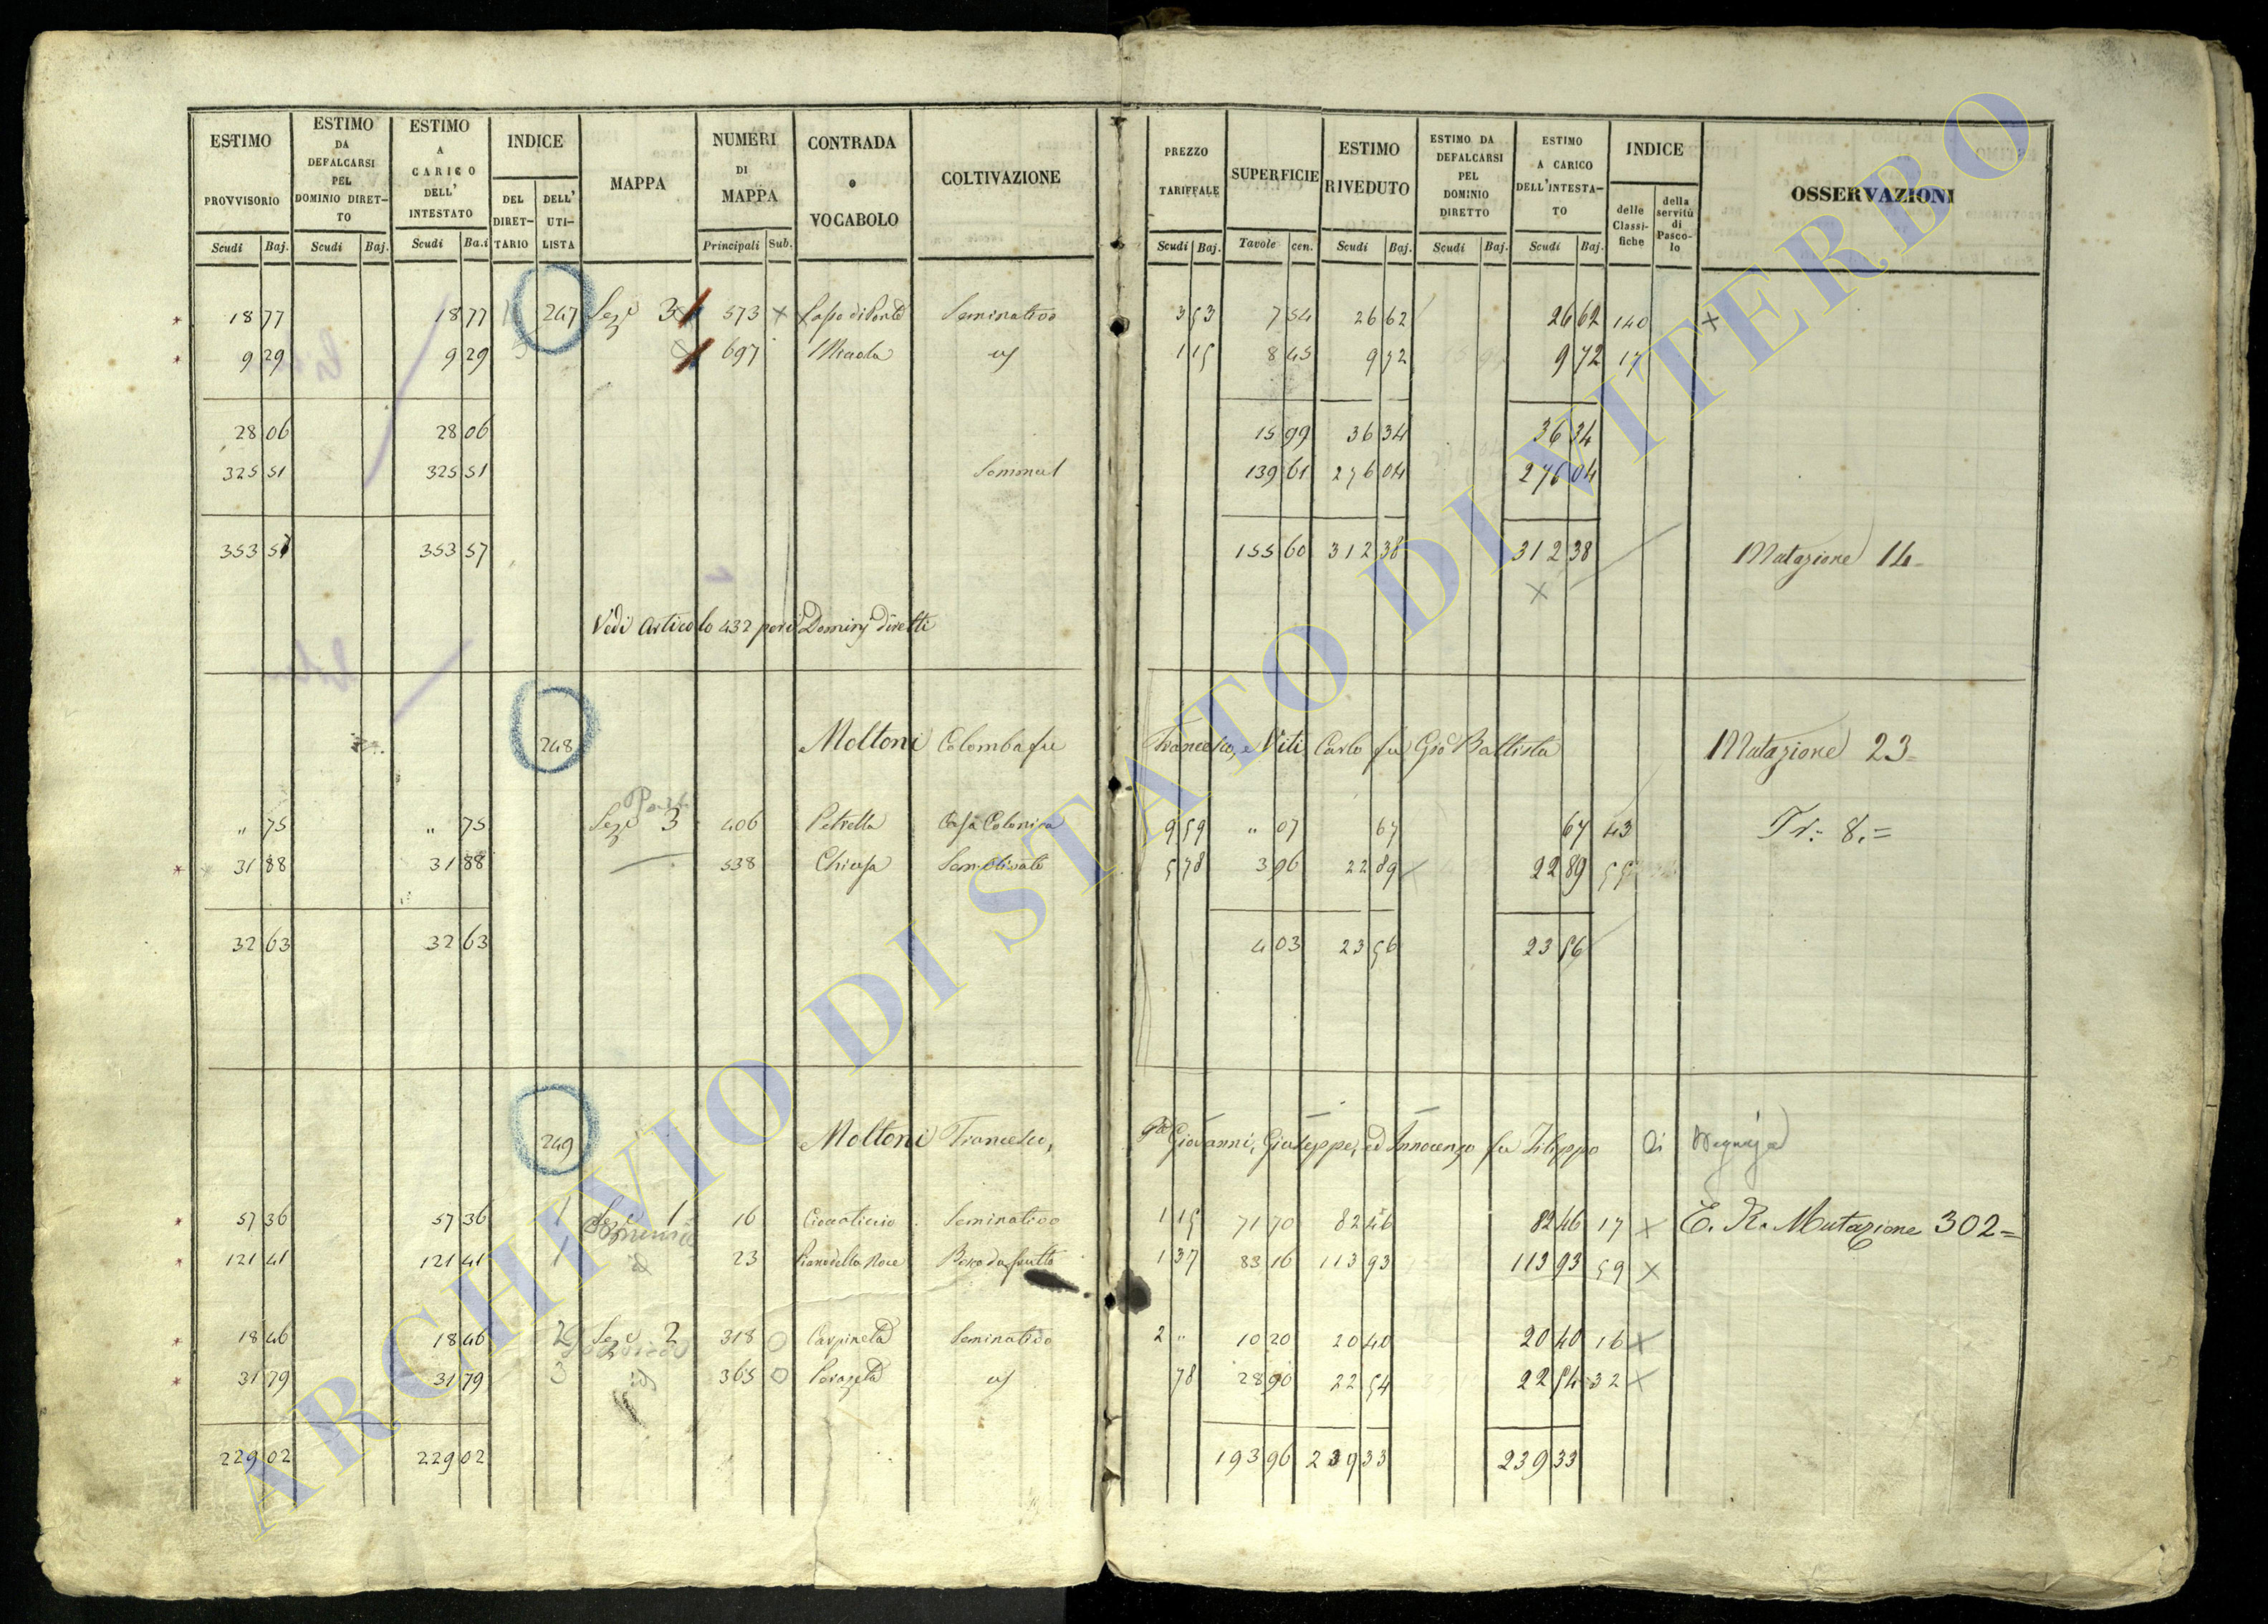 ESTIMO PROVVISORIO Scudi Baj.
ESTIMO DA DEFALCARSI PEL DOMINIO DIRETTO Scudi Baj.
ESTIMO A CARICO DELL' INTESTATO Scudi Ba.i
INDICE DEL DIRETTARIO DELL' UTILISTA
MAPPA
NUMERI DI MAPPA Principali Sub.
CONTRADA o VOCABOLO
COLTIVAZIONE
PREZZO TARIFFALE Scudi Baj.
SUPERFICIE Tavole cen.
ESTIMO RIVEDUTO Scudi Baj.
ESTIMO DA DEFALCARSI PEL DOMINIO DIRETTO Scudi Baj.
ESTIMO A CARICO DELL'INTESTATO Scudi Baj.
INDICE delle Classifiche della servitù di Pascolo
OSSERVAZIONI
18 77 18 77 247 Sez.e 3 573 Seminativo 3 53 7 54 26 62 26 62 140
9 29 9 29 697 1 15 8 45 9 72 9 72 17
28 06 28 06 15 99 36 34 36 34
325 51 325 51 139 61 276 04 276 04
353 57 353 57 155 60 312 38 312 38 Mutazione 14
Vedi Articolo 432 per i Dominj diretti
248 Moltoni Colomba fu Francesco, e Viti Carlo fu Gio Battista Mutazione 23
" 75 " 75 Sez.e 3 406 Petrella Casa Colonica 9 59 " 07 67 67 43 Tr: 8.=
31 88 31 88 538 Chiusa Sem. Olivato 5 78 3 96 22 89 22 89
32 63 32 63 4 03 23 56 23 56
249 Moltoni Francesco, Giovanni, Giuseppe, ed Innocenzo fu Filippo di
57 36 57 36 1 Sez.e 1 16 Seminativo 1 15 71 70 82 46 82 46 17 E. R. Mutazione 302=
121 41 121 41 1 23 Piano della Noce Bosco da frutto 1 37 83 16 113 93 113 93 59
18 46 18 46 2 Sez.e 2 318 Carpineta Seminativo 2 " 10 20 20 40 20 40 16
31 79 31 79 3 365 Perazeta 78 28 90 22 54 22 54 32
229 02 229 02 193 96 239 33 239 33
ARCHIVIO DI STATO DI VITERBO